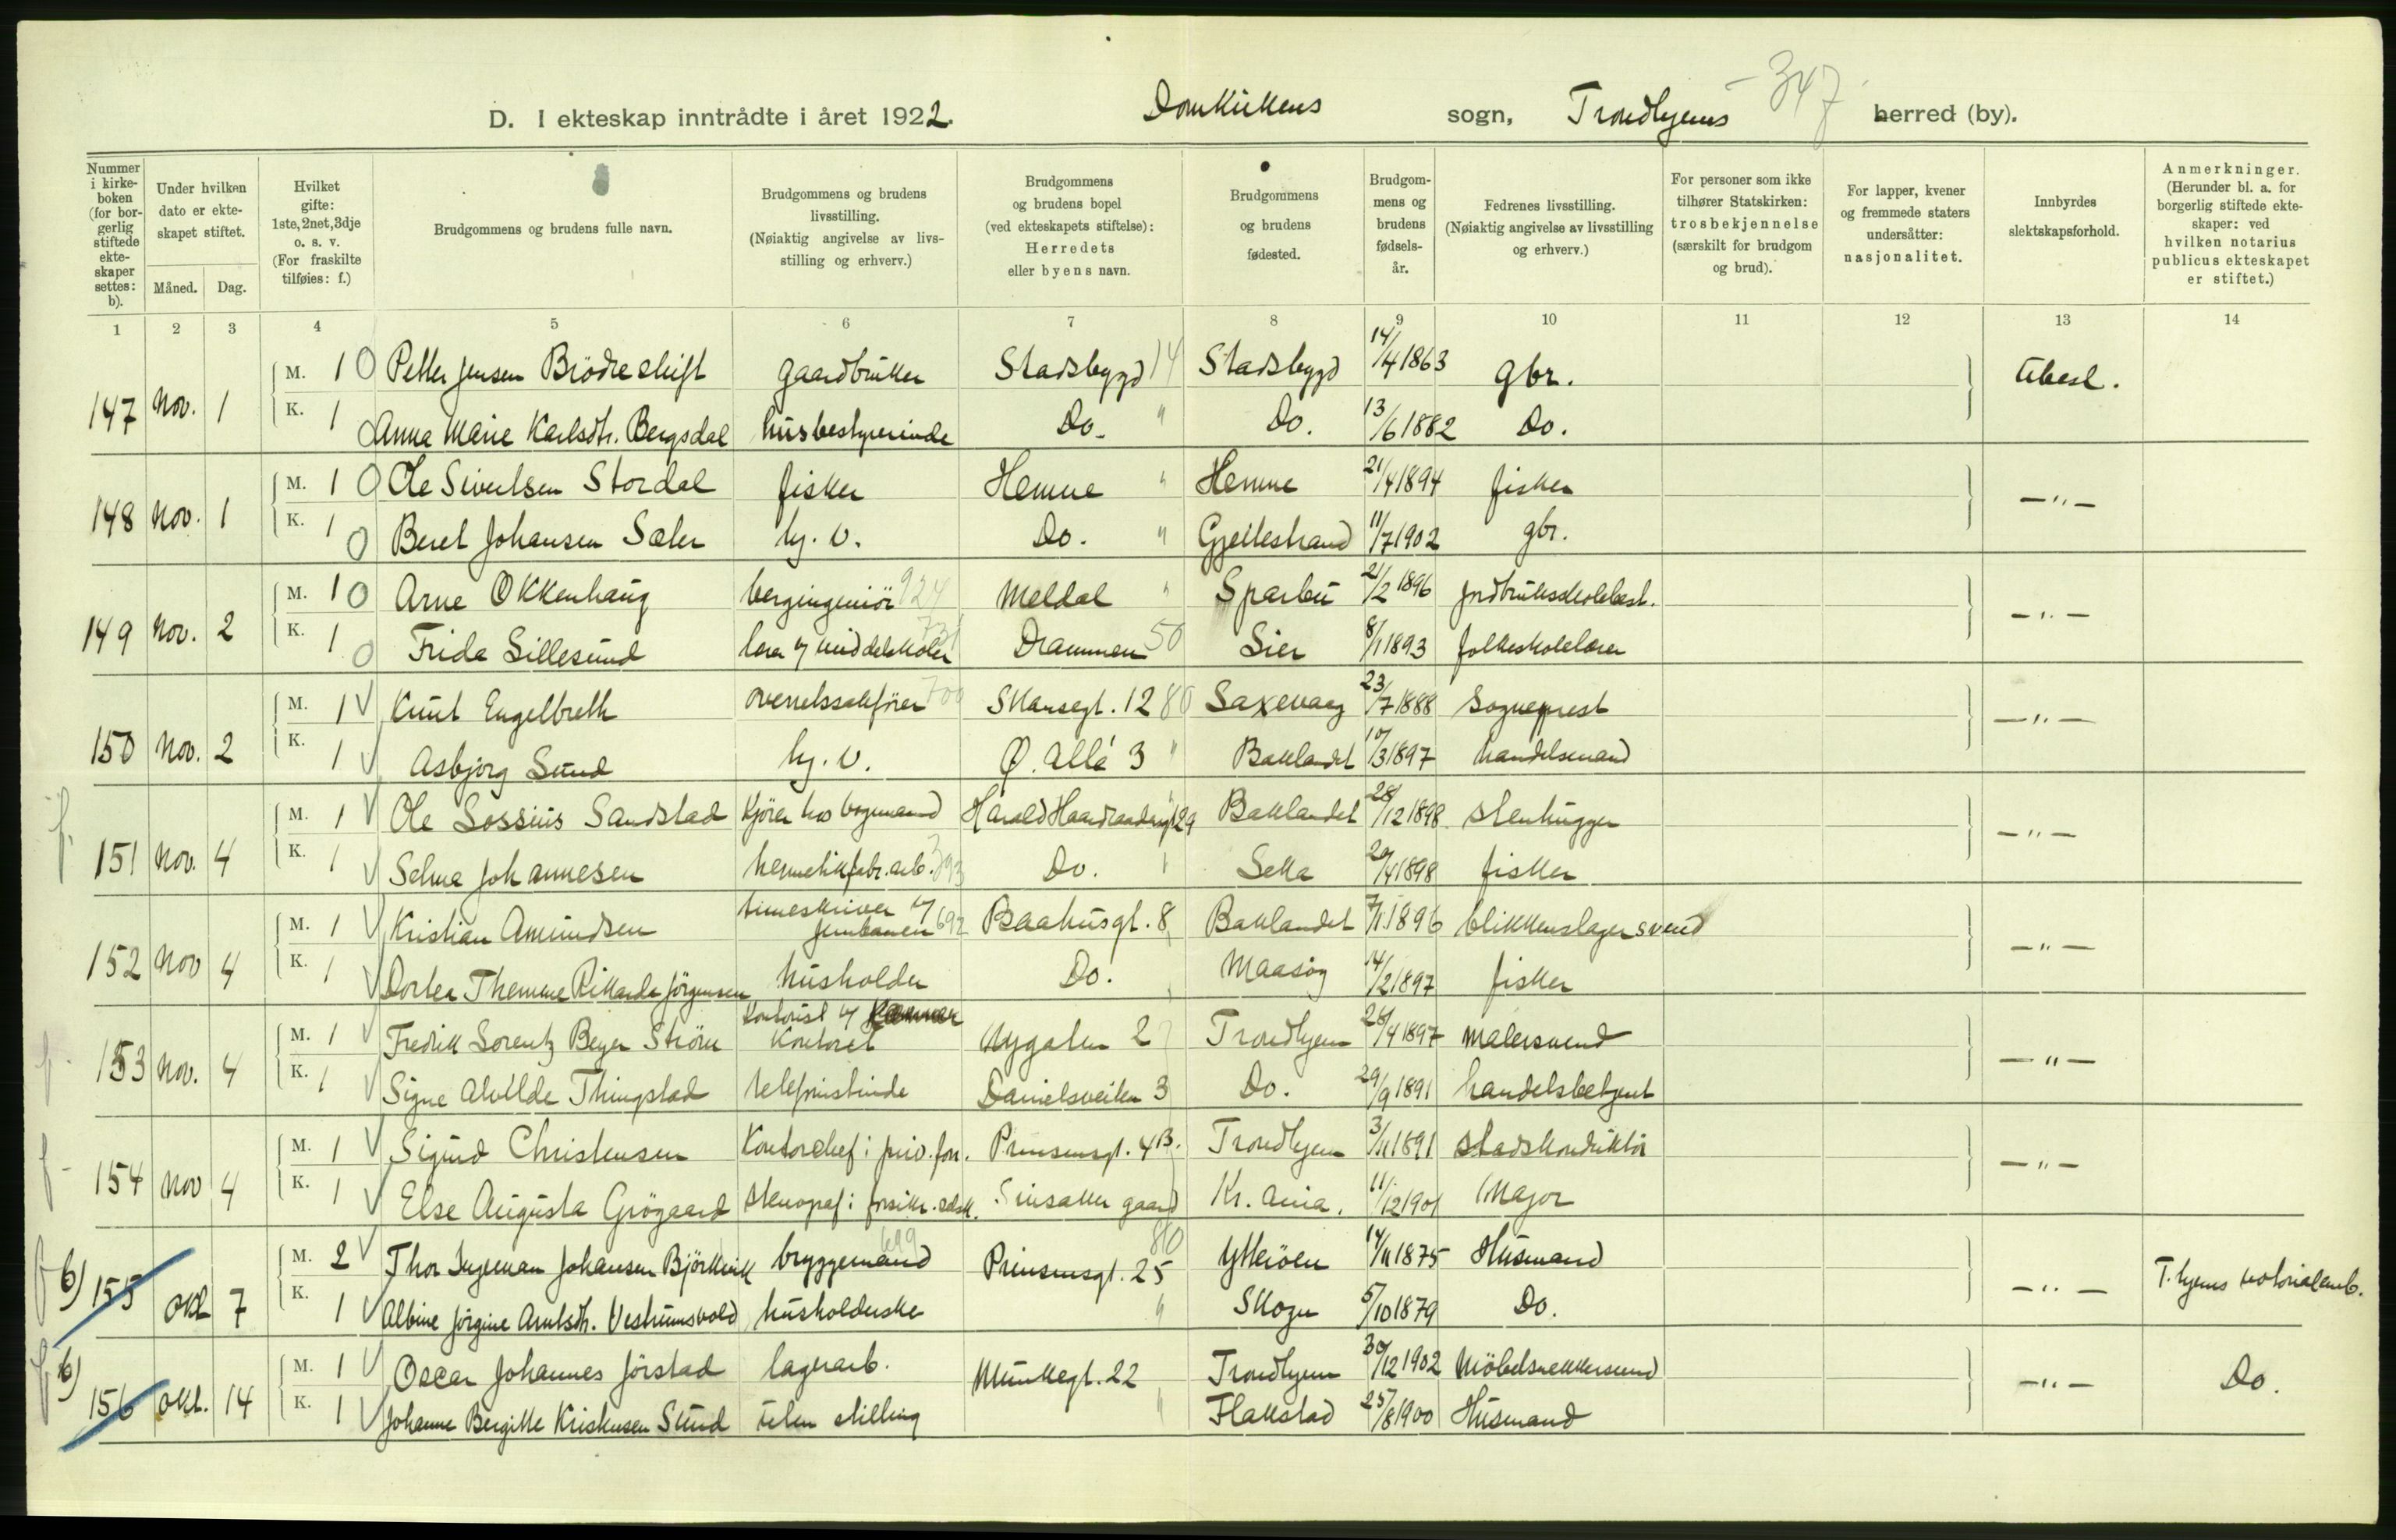 D. I ekteskap inntrådte i året 1922. Domkirkens sogn, Trondhjems herred (by).
347
Nummer i kirkeboken (for borgerlig stiftede ekteskaper settes: b).
Under hvilken dato er ekteskapet stiftet. Måned. Dag.
Hvilket gifte: 1ste, 2net, 3dje o. s. v. (For fraskilte tilføies: f.)
Brudgommens og brudens fulle navn.
Brudgommens og brudens livsstilling. (Nøiaktig angivelse av livsstilling og erhverv.)
Brudgommens og brudens bopel (ved ekteskapets stiftelse): Herredets eller byens navn.
Brudgommens og brudens fødested.
Brudgommens og brudens fødselsår.
Fedrenes livsstilling. (Nøiaktig angivelse av livsstilling og erhverv.)
For personer som ikke tilhører Statskirken: trosbekjennelse (særskilt for brudgom og brud).
For lapper, kvener og fremmede staters undersåtter: nasjonalitet.
Innbyrdes slektskapsforhold.
Anmerkninger. (Herunder bl. a. for borgerlig stiftede ekteskaper: ved hvilken notarius publicus ekteskapet er stiftet.)
1 2 3 4 5 6 7 8 9 10 11 12 13 14
147 Nov. 1 M. 1 0 Petter Jensen Brödreskift gaardbruker Stadsbygd 14 Stadsbygd 14/4 1863 gbr. Ubesl.
K. 1 0 Anna Marie Karlsdtr. Bergsdal husbestyrerinde Do. " Do. 13/6 1882 Do.
148 Nov. 1 M. 1 0 Ole Sivertsen Stordal fisker Hemne " Hemne 21/4 1894 fisker —"—
K. 1 0 Beret Johansen Sæter hj. v. Do. " Gjeilestrand 11/7 1902 gbr.
149 Nov. 2 M. 1 0 Arne Okkenhaug bergingeniör 924 Meldal " Sparbu 21/2 1896 jordbruksskolebest. —"—
K. 1 0 Frida Lillesund middelskolen 731 Drammen 50 Lier 8/1 1893 folkeskolelærer
150 Nov. 2 M. 1 V Knut Engelbreth overretssakförer 700 Skansegt. 12 80 Saxevaag 23/7 1888 Sogneprest —"—
K. 1 V Asbjörg Sund hj. v. Ø. Allé 3 " Baklandet 10/3 1897 handelsmand
f.
151 Nov. 4 M. 1 V Ole Lossius Sandstad kjörer hos vognmand Harald Haardraadesgt 29 Baklandet 28/12 1898 stenhugger —"—
K. 1 V Selma Johannesen hermetikfabr. arb. 393 Do. Leka 20/4 1898 fisker
152 Nov 4 M. 1 V Kristian Amundsen timeskriver v/ jernbanen 692 Baahusgt. 8 Baklandet 7/1 1896 blikkenslagersvend —"—
K. 1 V Dortea Themine Rikarda Jörgensen husholder Do. Maasöy 14/2 1897 fisker
f.
153 Nov. 4 M. 1 V Fredrik Lorentz Beyer Ström kontorist v/ kontoret Nygaten 2 Trondhjem 28/4 1897 malersvend —"—
K. 1 V Signe Alvilde Thingstad telefonistinde Danielsveiten 3 Do. 29/9 1891 handelsbetjent
f.
154 Nov 4 M. 1 V Sigurd Christensen Kontorchef i priv. forr. Prinsensgt. 4B. Trondhjem 3/11 1891 stadskonduktör —"—
K. 1 V Else Augusta Grögaard stenograf i forsikr. selsk. Sinsaker gaard Kr.ania. 11/12 1901 Major
f
b) 155 Okt 7 M. 2 V Thor Ingeman Johansen Björkvik bryggemand 699 Prinsensgt. 25 80 Ytteröen 14/11 1875 Husmand —"— T.hjems notorialemb.
K. 1 V Albine Jörgine Arntsdtr. Vestrumsvold husholderske " Skogn 5/10 1879 Do.
f
b) 156 Okt. 14 M. 1 V Oscar Johannes Jörstad lagerarb. Munkegt. 22 Trondhjem 30/12 1902 Möbelsnekkersvend —"— Do.
K. 1 V Johanne Bergitte Kristensen Sund uten stilling " Flakstad 25/8 1900 Husmand